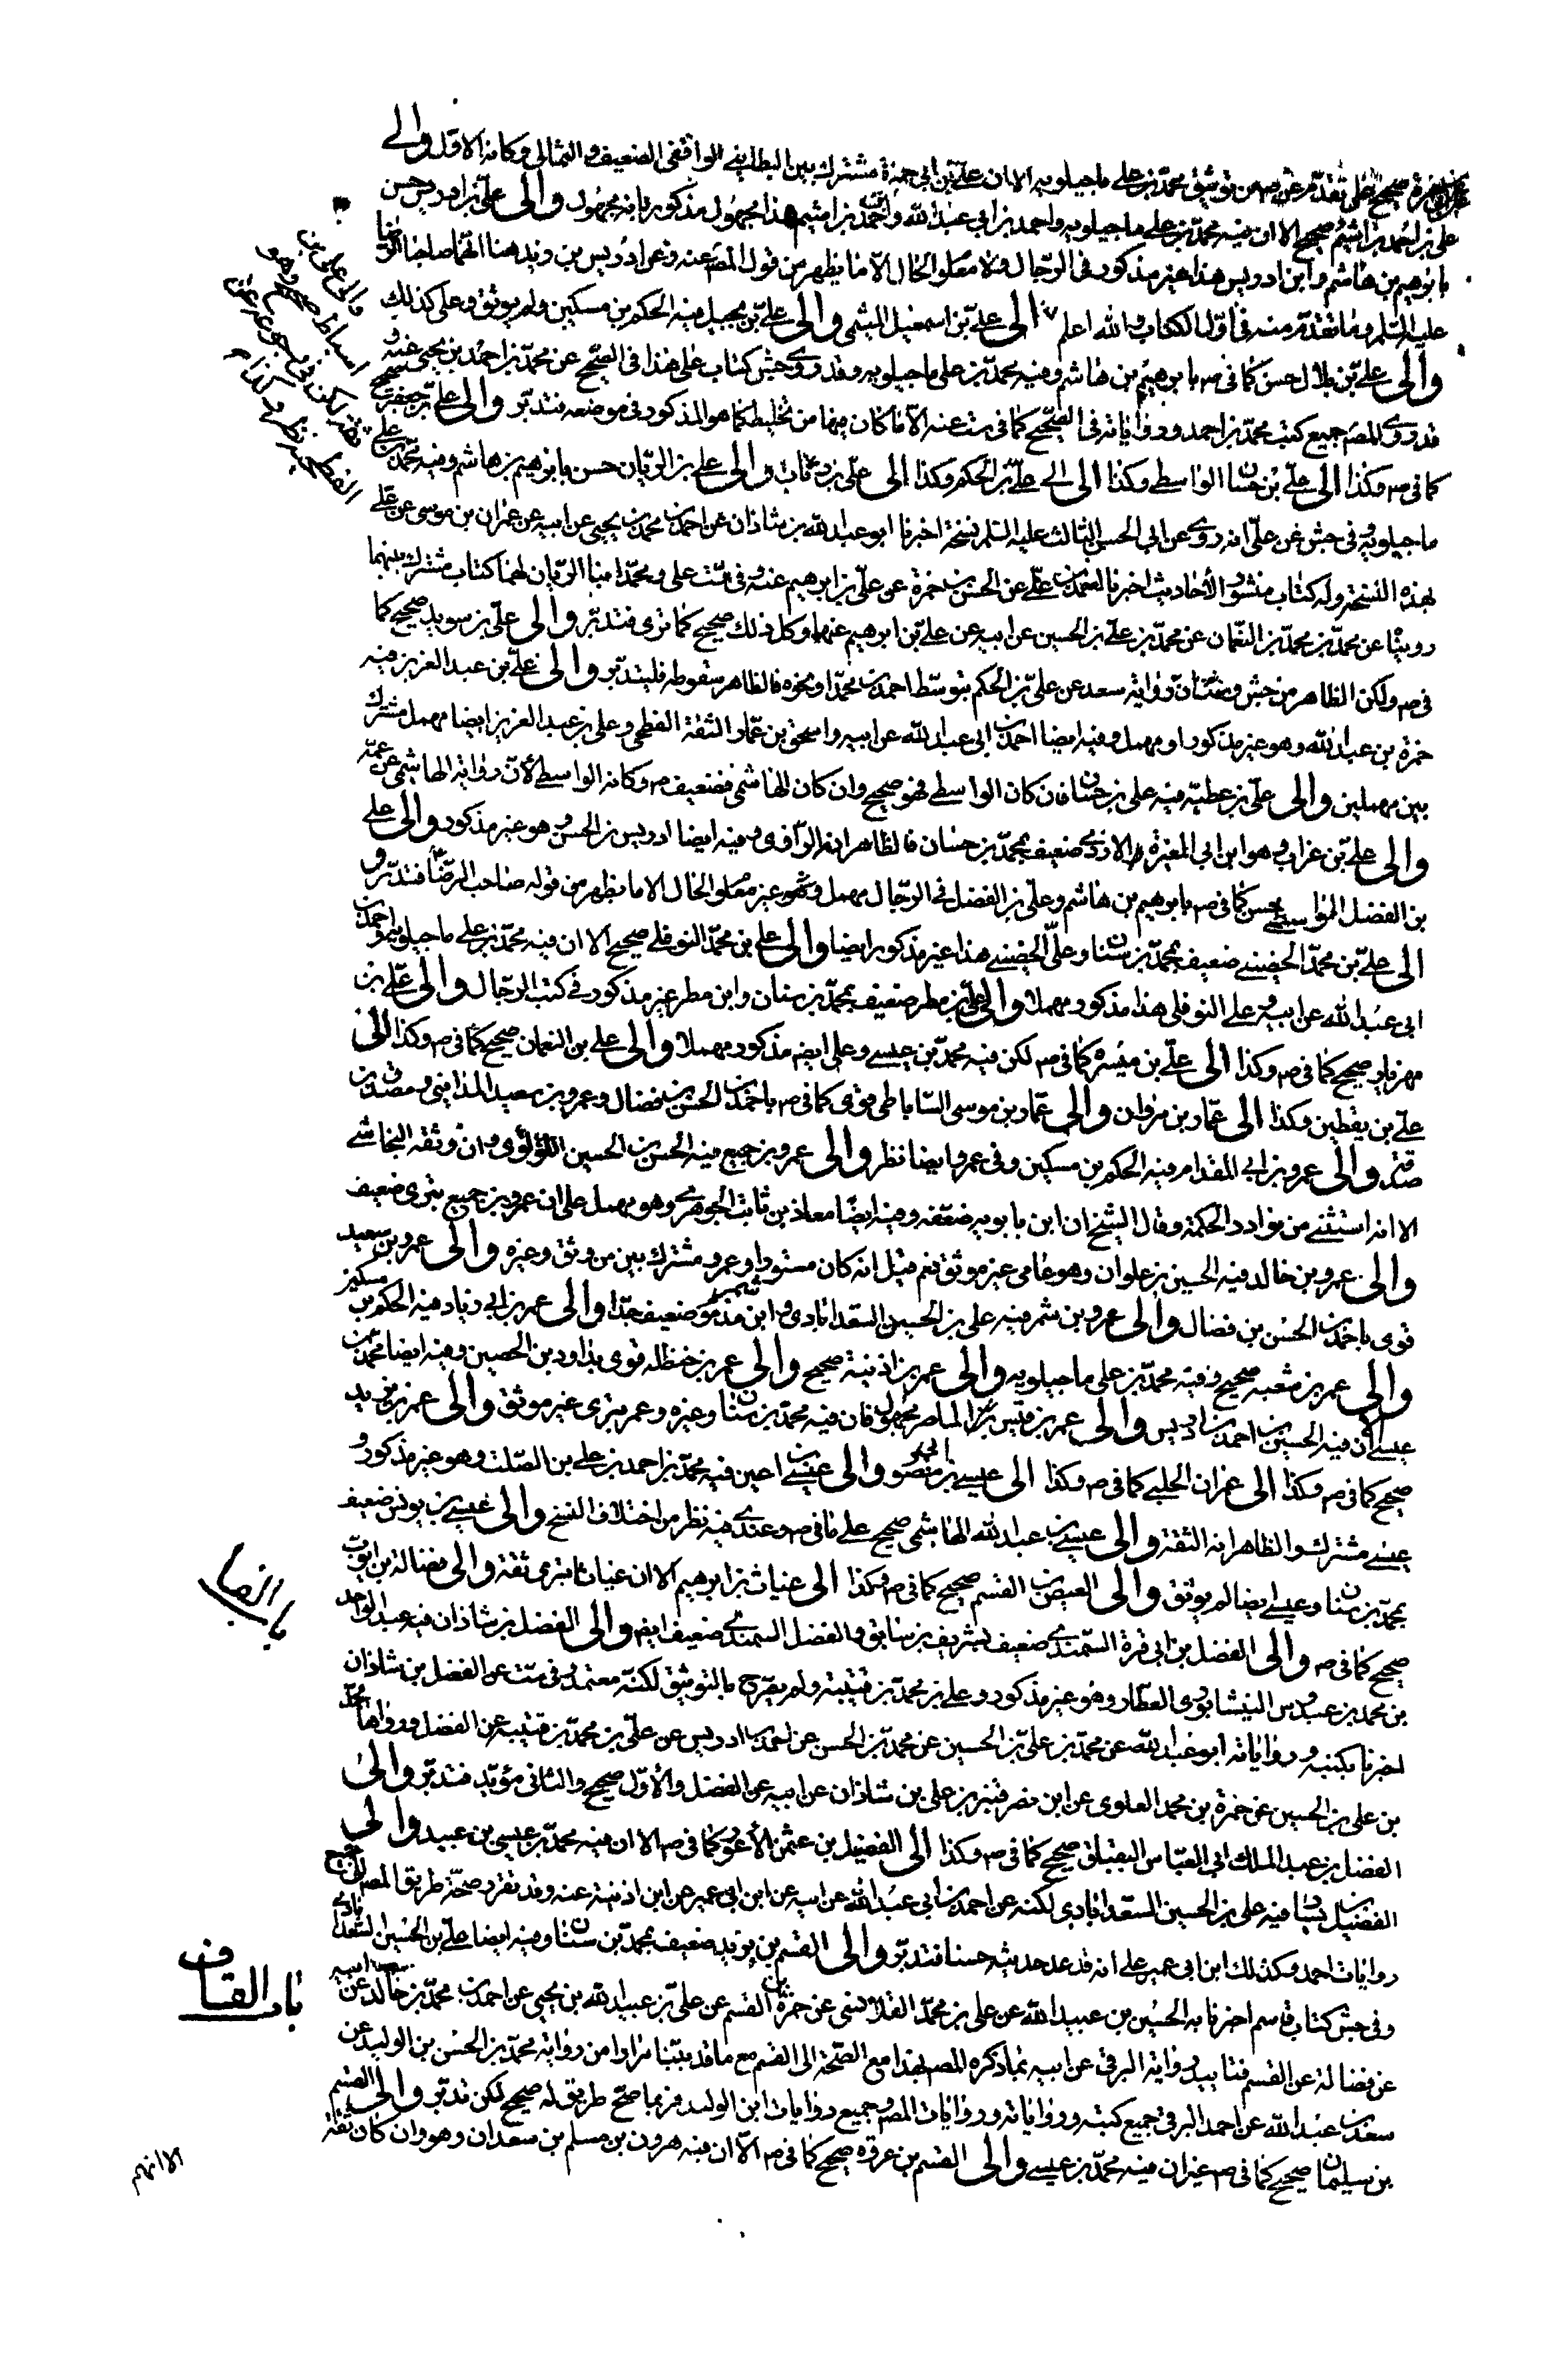 علي بن أبي حمزة صحيح على ما تقدم من توثيق محمد بن علي ماجيلويه الا ان علي بن ابي حمزة مشترك بين البطايني الواقفي الضعيف والثمالي وكانه الاول والى
علي بن احمد بن اشيم صحيح الا ان فيه محمد بن علي ماجيلويه واحمد بن ابي عبد الله واحمد بن اشيم هذا مجهول مذكور بانه مجهول والى علي بن ادريس حسن
بابرهيم بن هاشم وابن ادريس هذا غير مذكور في الرجال ولا معلو الحال الا ما يظهر من قول المصر عنه وعن ادريس بن زيد هنا انهما صاحبا الرضا
عليه السلم وما تقدم منه في اول الكتاب والله اعلم والى علي بن اسمعيل الميثمي والى علي بن بجيل فيه الحكم بن مسكين ولم يوثق وعلى كذلك
والى علي بن بلال حسن كما في صه بابرهيم بن هاشم وفيه محمد بن علي ماجيلويه وقد روى جش كتاب علي هذا في الصحيح عن محمد بن احمد بن يحيى عنه و
قد روى المصر جميع كتب محمد بن احمد ورواياته في الصحيح كما في ست عنه الا ما كان فيها من تخليط كما هو المذكور في موضعه فتدبر والى علي بن جعفر صحيح
كما في صه وكذا الى علي بن حسان الواسطي وكذا الى علي بن الحكم وكذا الى علي بن رئاب والى علي بن الريان حسن بابرهيم بن هاشم وفيه محمد بن علي
ماجيلويه وفي جش عن علي انه روى عن ابي الحسن الثالث عليه السلم نسخة اخبرنا ابو عبد الله بن شاذان عن احمد بن محمد بن يحيى عن ابيه عن عمران بن موسى عن علي
بهذه النسخة وله كتاب منثور الاحاديث اخبرنا علي عن الحسن بن حمزة عن علي بن ابرهيم عنه وفي ست علي ومحمد ابنا الريان لهما كتاب مشترك بينهما
رويناه عن محمد بن محمد بن النعمان عن محمد بن علي بن الحسين عن ابيه عن علي بن ابرهيم عنهما وكل ذلك صحيح كما ترى فتدبر والى علي بن سويد صحيح كما
في صه ولكن الظاهر من جش وست ان رواية سعد عن علي بن الحكم بتوسط احمد بن محمد او نحوه فالظاهر سقوطه فليتدبر والى علي بن عبد العزيز فيه
حمزة بن عبد الله وهو غير مذكور او مهمل وفيه ايضا احمد بن ابي عبد الله عن ابيه واسحق بن عمار الثقة الفطحي وعلي بن عبد العزيز ايضا مهمل مشترك
بين مهملين والى علي بن عطيه فيه علي بن حسان فان كان الواسطي فهو صحيح وان كان الهاشمي فضعيف صه وكانه الواسطي لان رواية الهاشمي عن عمه
والى علي بن غراب وهو ابن ابي المغيرة الازدي ضعيف بمحمد بن حسان فالظاهر انه الرازي وفيه ايضا ادريس بن الحسن وهو غير مذكور والى علي
بن الفضل الواسطي حسن كما في صه بابرهيم بن هاشم وعلي بن الفضل في الرجال مهمل وهو غير معلو الحال الا ما يظهر من قوله صاحب الرضا فتدبر و
الى علي بن محمد الحضيني ضعيف بمحمد بن سنان وعلي الحضيني هذا غير مذكور ايضا والى علي بن محمد النوفلي صحيح الا ان فيه محمد بن علي ماجيلويه واحمد بن
ابي عبد الله عن ابيه وعلي النوفلي هذا مذكور مهملا والى علي بن مطر ضعيف بمحمد بن سنان وابن مطر غير مذكور في كتب الرجال والى علي بن
مهزيار صحيح كما في صه وكذا الى علي بن ميسره كما في صه لكن فيه محمد بن عيسى وعلي ايضه مذكور مهملا والى علي بن النعمان صحيح كما في صه وكذا الى
علي بن يقطين وكذا الى عمار بن مروان والى عمار بن موسى الساباطي قوي كما في صه باحمد بن الحسن بن فضال وعمرو بن سعيد المدايني ومصدق بن
صدقه والى عمرو بن ابي المقدام فيه الحكم بن مسكين وفي عمرو ايضا نظر والى عمرو بن جميع فيه الحسن بن الحسين اللؤلؤي وان وثقه النجاشي
الا انه استثنى من نوادر الحكمة وقال الشيخ ان ابن بابويه ضعفه وفيه ايضا معاذ بن ثابت الجوهري وهو مهمل على ان عمرو بن جميع بتري ضعيف
والى عمرو بن خالد فيه الحسين بن علوان وهو عامي غير موثق نعم قيل انه كان مستورا وعمرو مشترك بين من وثق وغيره والى عمرو بن سعيد
قوي باحمد بن الحسن بن فضال والى عمرو بن شمر فيه علي بن الحسين السعدابادي وابن شمر ضعيف جدا والى عمر بن ابي زياد فيه الحكم بن مسكين
والى عمر بن شعبه صحيح وفيه محمد بن علي ماجيلويه والى عمر بن اذينة صحيح والى عمر بن حنظله قوي بداود بن الحصين وفيه ايضا محمد بن
عيسى لان فيه الحسين بن احمد بن ادريس والى عمر بن قيس الماصر مجهول فان فيه محمد بن سنان وغيره وعمر بتري غير موثق والى عمر بن يزيد
صحيح كما في صه وكذا الى عمران الحلبي كما في صه وكذا الى عيسى بن ابي منصور والى عيسى بن اعين فيه محمد بن احمد بن علي بن الصلت وهو غير مذكور و
عيسى مشترك والظاهر انه الثقة والى عيسى بن عبد الله الهاشمي صحيح على ما في صه وعندي فيه نظر من اختلاف النسخ والى عيسى بن يونس ضعيف
بمحمد بن سنان وعيسى ايضا لم يوثق والى العيص بن القسم صحيح كما في صه وكذا الى غياث بن ابرهيم الا ان غياثا بتري ثقة والى فضالة بن ايوب
صحيح كما في صه والى الفضل بن ابي قرة السمندي ضعيف بشريف بن سابق والفضل السمندي ضعيف ايضه والى الفضل بن شاذان فيه عبد الواحد
بن محمد بن عبدوس النيشابوري العطار وهو غير مذكور وعلي بن محمد بن قتيبة ولم يصرح بالتوثيق لكنه معتمد وفي ست عن الفضل بن شاذان
اخبرنا بكتبه ورواياته ابو عبد الله عن محمد بن علي بن الحسين عن محمد بن الحسن عن احمد بن ادريس عن علي بن محمد بن قتيبه عن الفضل ورواها محمد
بن علي بن الحسين عن حمزة بن محمد العلوي عن ابن نصر قنبر بن علي بن شاذان عن ابيه عن الفضل والاول صحيح والثاني مؤيد فتدبر والى
الفضل بن عبد الملك ابي العباس البقباق صحيح كما في صه وكذا الى الفضيل بن عثمن الاعور كما في صه الا ان فيه محمد بن عيسى بن عبيد والى
الفضيل بن يسار فيه علي بن الحسين السعدابادي لكنه عن احمد بن ابي عبد الله عن ابيه عن ابن ابي عمير عن ابن اذينة عنه وقد تقرر صحة طريق المصر الى جميع
روايات احمد وكذلك ابن ابي عمير على انه قد عد حديثه حسنا فتدبر والى القسم بن بريد ضعيف بمحمد بن سنان وفيه ايضا علي بن الحسين السعدابادي
وفي جش كتاب قاسم اخبرنا به الحسين بن عبيد الله عن علي بن محمد القلانسي عن حمزة بن القسم عن علي بن عبد الله بن يحيى عن احمد بن محمد بن خالد عن ابيه
عن فضالة عن القسم فتاييد رواية البرقي عن ابيه بما ذكره المصر هذا مع الصحة الى القسم مع ما قد بيننا مرارا من رواية محمد بن الحسن بن الوليد عن
سعد بن عبد الله عن احمد البرقي جميع كتبه ورواياته وروايات المصر وجميع روايات ابن الوليد فربما صح طريق له صحيح لكن تدبر والى القسم
بن سليمان صحيح كما في صه غير ان فيه محمد بن عيسى والى القسم بن عروه صحيح كما في صه الا ان فيه هرون بن مسلم بن سعدان وهو وان كان ثقة
والى علي بن
اسباط صحيح وهو
الفطحي
باب الفاء
باب القاف
الا انهم